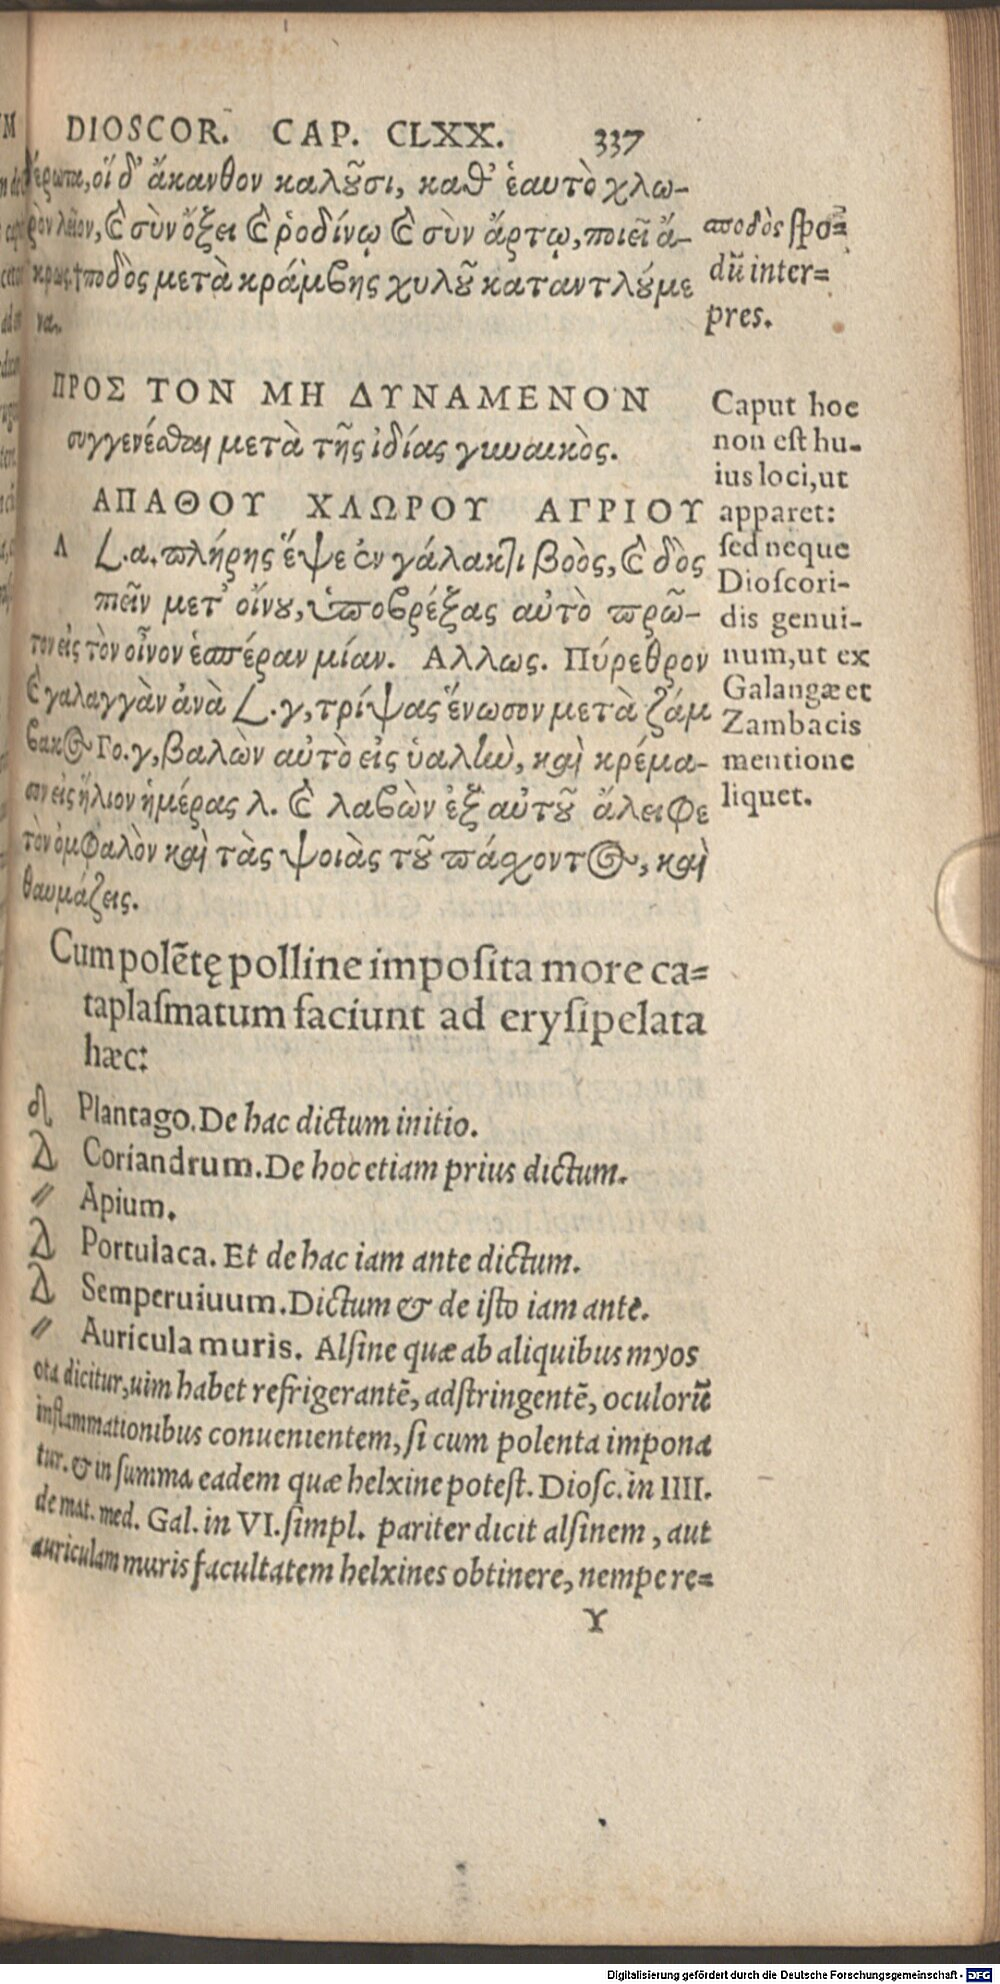 DIOSCOR. CAP. CLXX. 337
έρωτα, οἵ δ' ἄκανθον καλοῦσι, καθ' ἑαυτὸ χλω-
ρὸν λεῖον, & σὺν ὄξει & ῥοδίνῳ & σὺν ἄρτῳ, ποιεῖ ἄ-
κρως, †ποδὸς μετὰ κράμβης χυλοῦ καταντλούμε
να.
αποδὸς spo=
dũ inter=
pres.
ΠΡΟΣ ΤΟΝ ΜΗ ΔΥΝΑΜΕΝΟΝ
συγγενέσθαι μετὰ τῆς ἰδίας γυναικὸς.
ΑΠΑΘΟΥ ΧΛΩΡΟΥ ΑΓΡΙΟΥ
Λ L. α. πλήρης ἕψε ἐν γάλακτι βοὸς, & δὸς
πιεῖν μετ' οἴνου, ὑποβρέξας αὐτὸ πρῶ-
τον εἰς τὸν οἶνον ἑσπέραν μίαν. Αλλως. Πύρεθρον
& γαλαγγὰν ἀνὰ L. γ, τρίψας ἕνωσον μετὰ ζάμ
βακος Γο. γ, βαλὼν αὐτὸ εἰς ὑαλὴν, καὶ κρέμα-
σον εἰς ἥλιον ἡμέρας λ. & λαβὼν ἐξ αὐτοῦ ἄλειφε
τὸν ὀμφαλὸν καὶ τὰς ψοιὰς τοῦ πάσχοντος, καὶ
θαυμάζεις.
Caput hoc
non est hu-
ius loci, ut
apparet:
sed neque
Dioscori-
dis genui-
num, ut ex
Galangæ et
Zambacis
mentione
liquet.
Cum polẽtę polline imposita more ca=
taplasmatum faciunt ad erysipelata
hæc:
Plantago. De hac dictum initio.
Coriandrum. De hoc etiam prius dictum.
Apium.
Portulaca. Et de hac iam ante dictum.
Semperuiuum. Dictum & de isto iam ante.
Auricula muris. Alsine quæ ab aliquibus myos
ota dicitur, uim habet refrigerantẽ, adstringentẽ, oculorũ
inflammationibus conuenientem, si cum polenta impona
tur. & in summa eadem quæ helxine potest. Diosc. in IIII.
de mat. med. Gal. in VI. simpl. pariter dicit alsinem, aut
auriculam muris facultatem helxines obtinere, nempe re=
Y
Digitalisierung gefördert durch die Deutsche Forschungsgemeinschaft - DFG